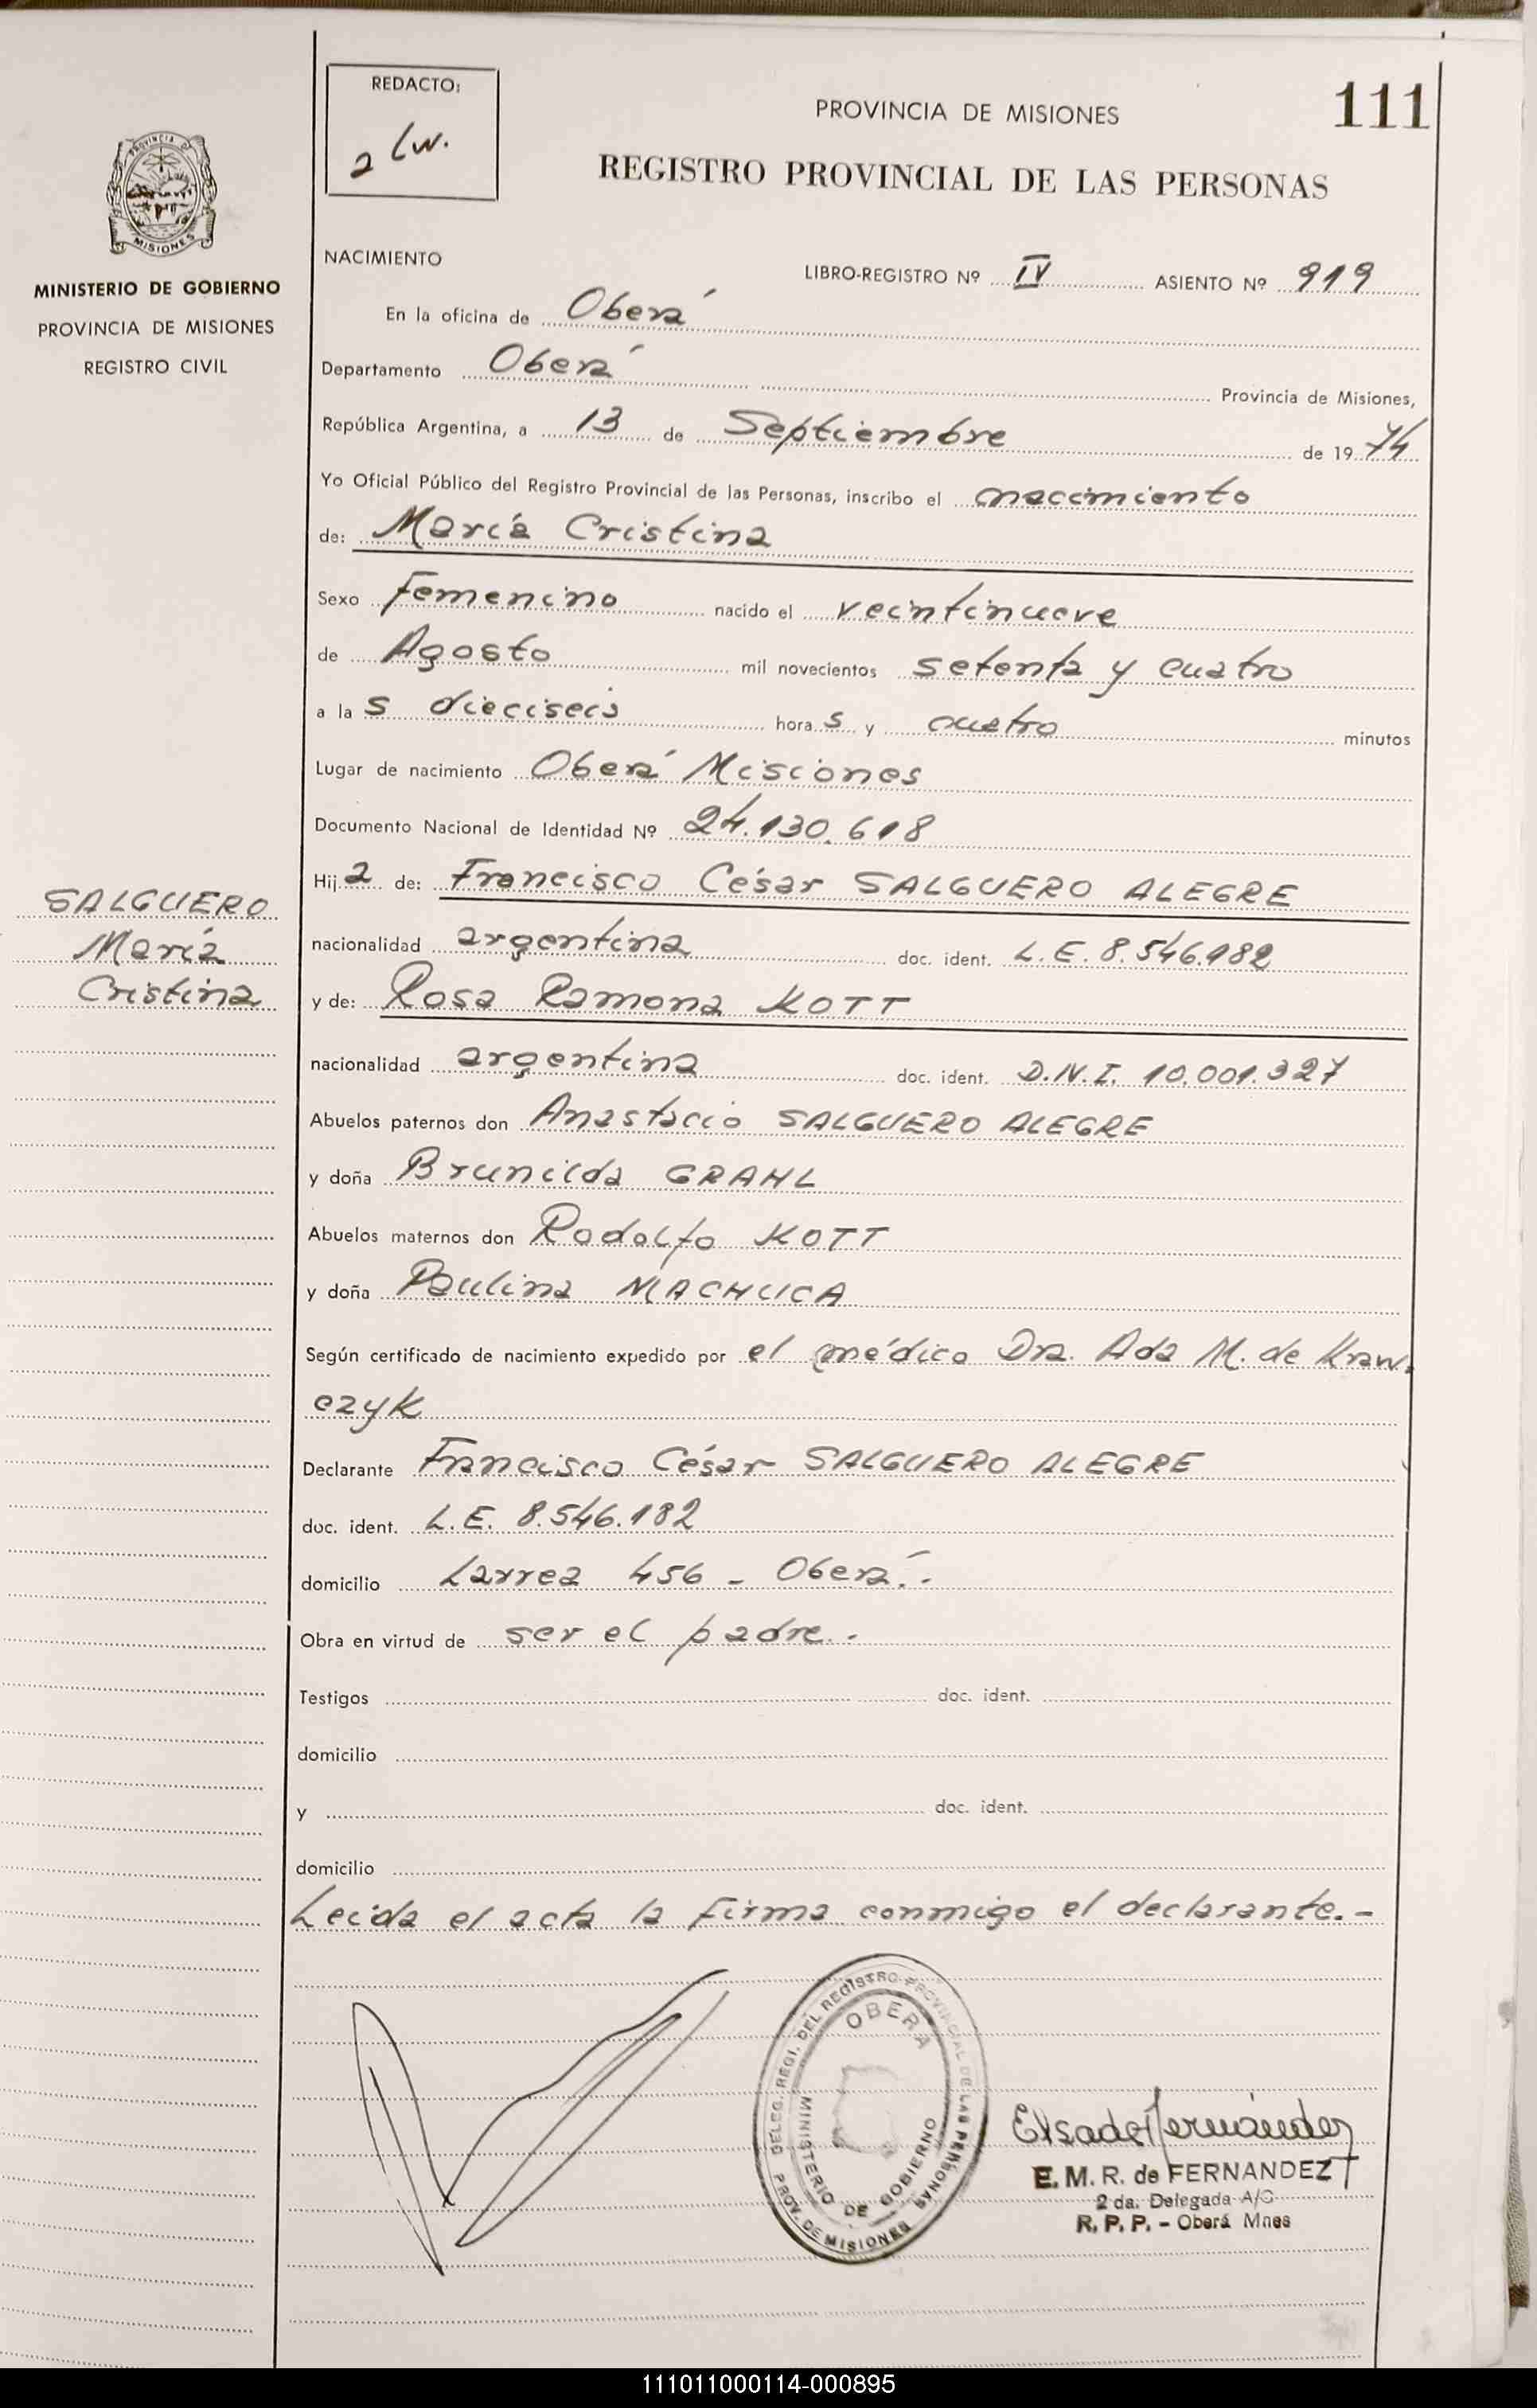 REDACTO:
PROVINCIA DE MISIONES
111
REGISTRO PROVINCIAL DE LAS PERSONAS
MISIONES
MINISTERIO DE GOBIERNO
PROVINCIA DE MISIONES
REGISTRO CIVIL
NACIMIENTO
LIBRO-REGISTRO Nº IV ASIENTO Nº 919
En la oficina de Oberá
Departamento Oberá Provincia de Misiones,
República Argentina, a 13 de Septiembre de 1974
Yo Oficial Público del Registro Provincial de las Personas, inscribo el nacimiento
de: María Cristina
Sexo Femenino nacido el veintinueve
de Agosto mil novecientos setenta y cuatro
a las dieciseis horas y cuatro minutos
Lugar de nacimiento Oberá Misiones
Documento Nacional de Identidad Nº 24.130.618
Hija de: Francisco César SALGUERO ALEGRE
SALGUERO
María
Cristina
nacionalidad argentina doc. ident. L.E. 8.546.182
y de: Rosa Ramona KOTT
nacionalidad argentina doc. ident. D.N.I. 10.001.327
Abuelos paternos don Anastacio SALGUERO ALEGRE
y doña Brunilda GRAHL
Abuelos maternos don Rodolfo KOTT
y doña Paulina MACHUCA
Según certificado de nacimiento expedido por el médico Dra. Ada M. de Kraw-
czyk
Declarante Francisco César SALGUERO ALEGRE
doc. ident. L.E. 8.546.182
domicilio Larrea 456 - Oberá.-
Obra en virtud de ser el padre.-
Testigos doc. ident.
domicilio
y doc. ident.
domicilio
Leida el acta la firma conmigo el declarante.-
DELEG. REGI. DEL REGISTRO PROVINCIAL DE LAS PERSONAS
OBERA
MINISTERIO DE GOBIERNO
PROV. DE MISIONES
Elsa de Fernández
E. M. R. de FERNANDEZ
2 da. Delegada A/C
R. P. P. - Oberá Mnes
111011000114-000895